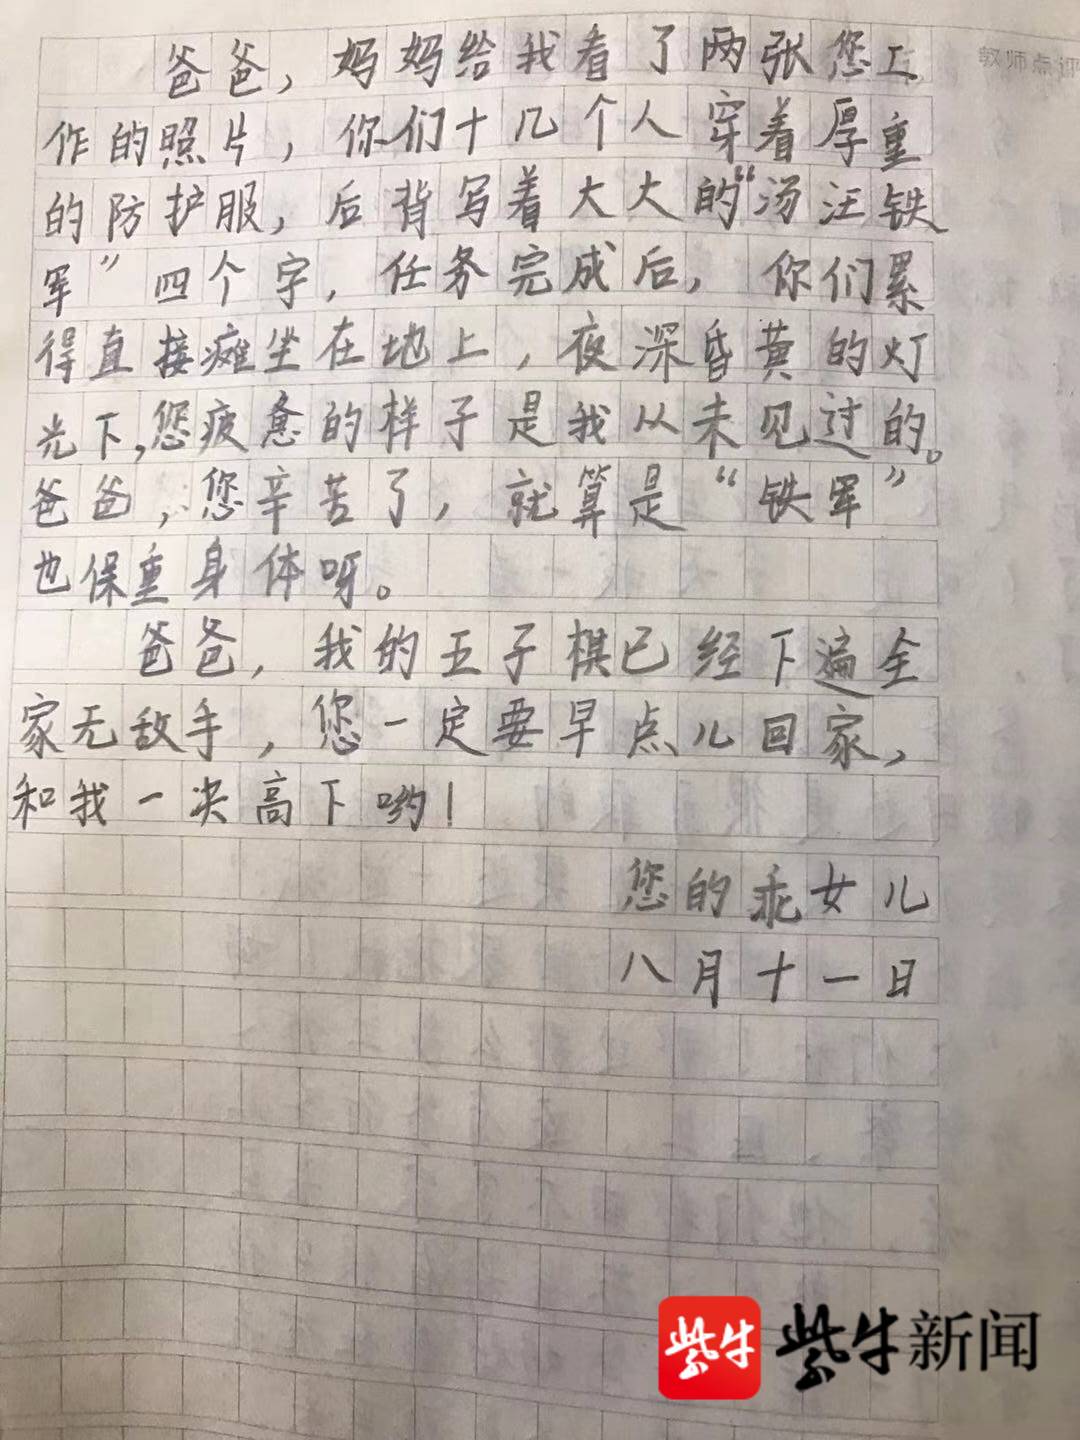 爸爸，妈妈给我看了两张您工
教师点评
作的照片，你们十几个人穿着厚重
的防护服，后背写着大大的“汤汪铁
军”四个字，任务完成后，你们累
得直接瘫坐在地上，夜深昏黄的灯
光下，您疲惫的样子是我从未见过的。
爸爸，您辛苦了，就算是“铁军”
也保重身体呀。
爸爸，我的五子棋已经下遍全
家无敌手，您一定要早点儿回家，
和我一决高下哟！
您的乖女儿
八月十一日
紫牛 紫牛新闻